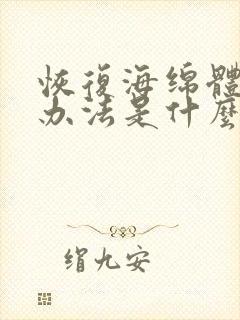 恢復海绵體
办法是什麼
绢九安